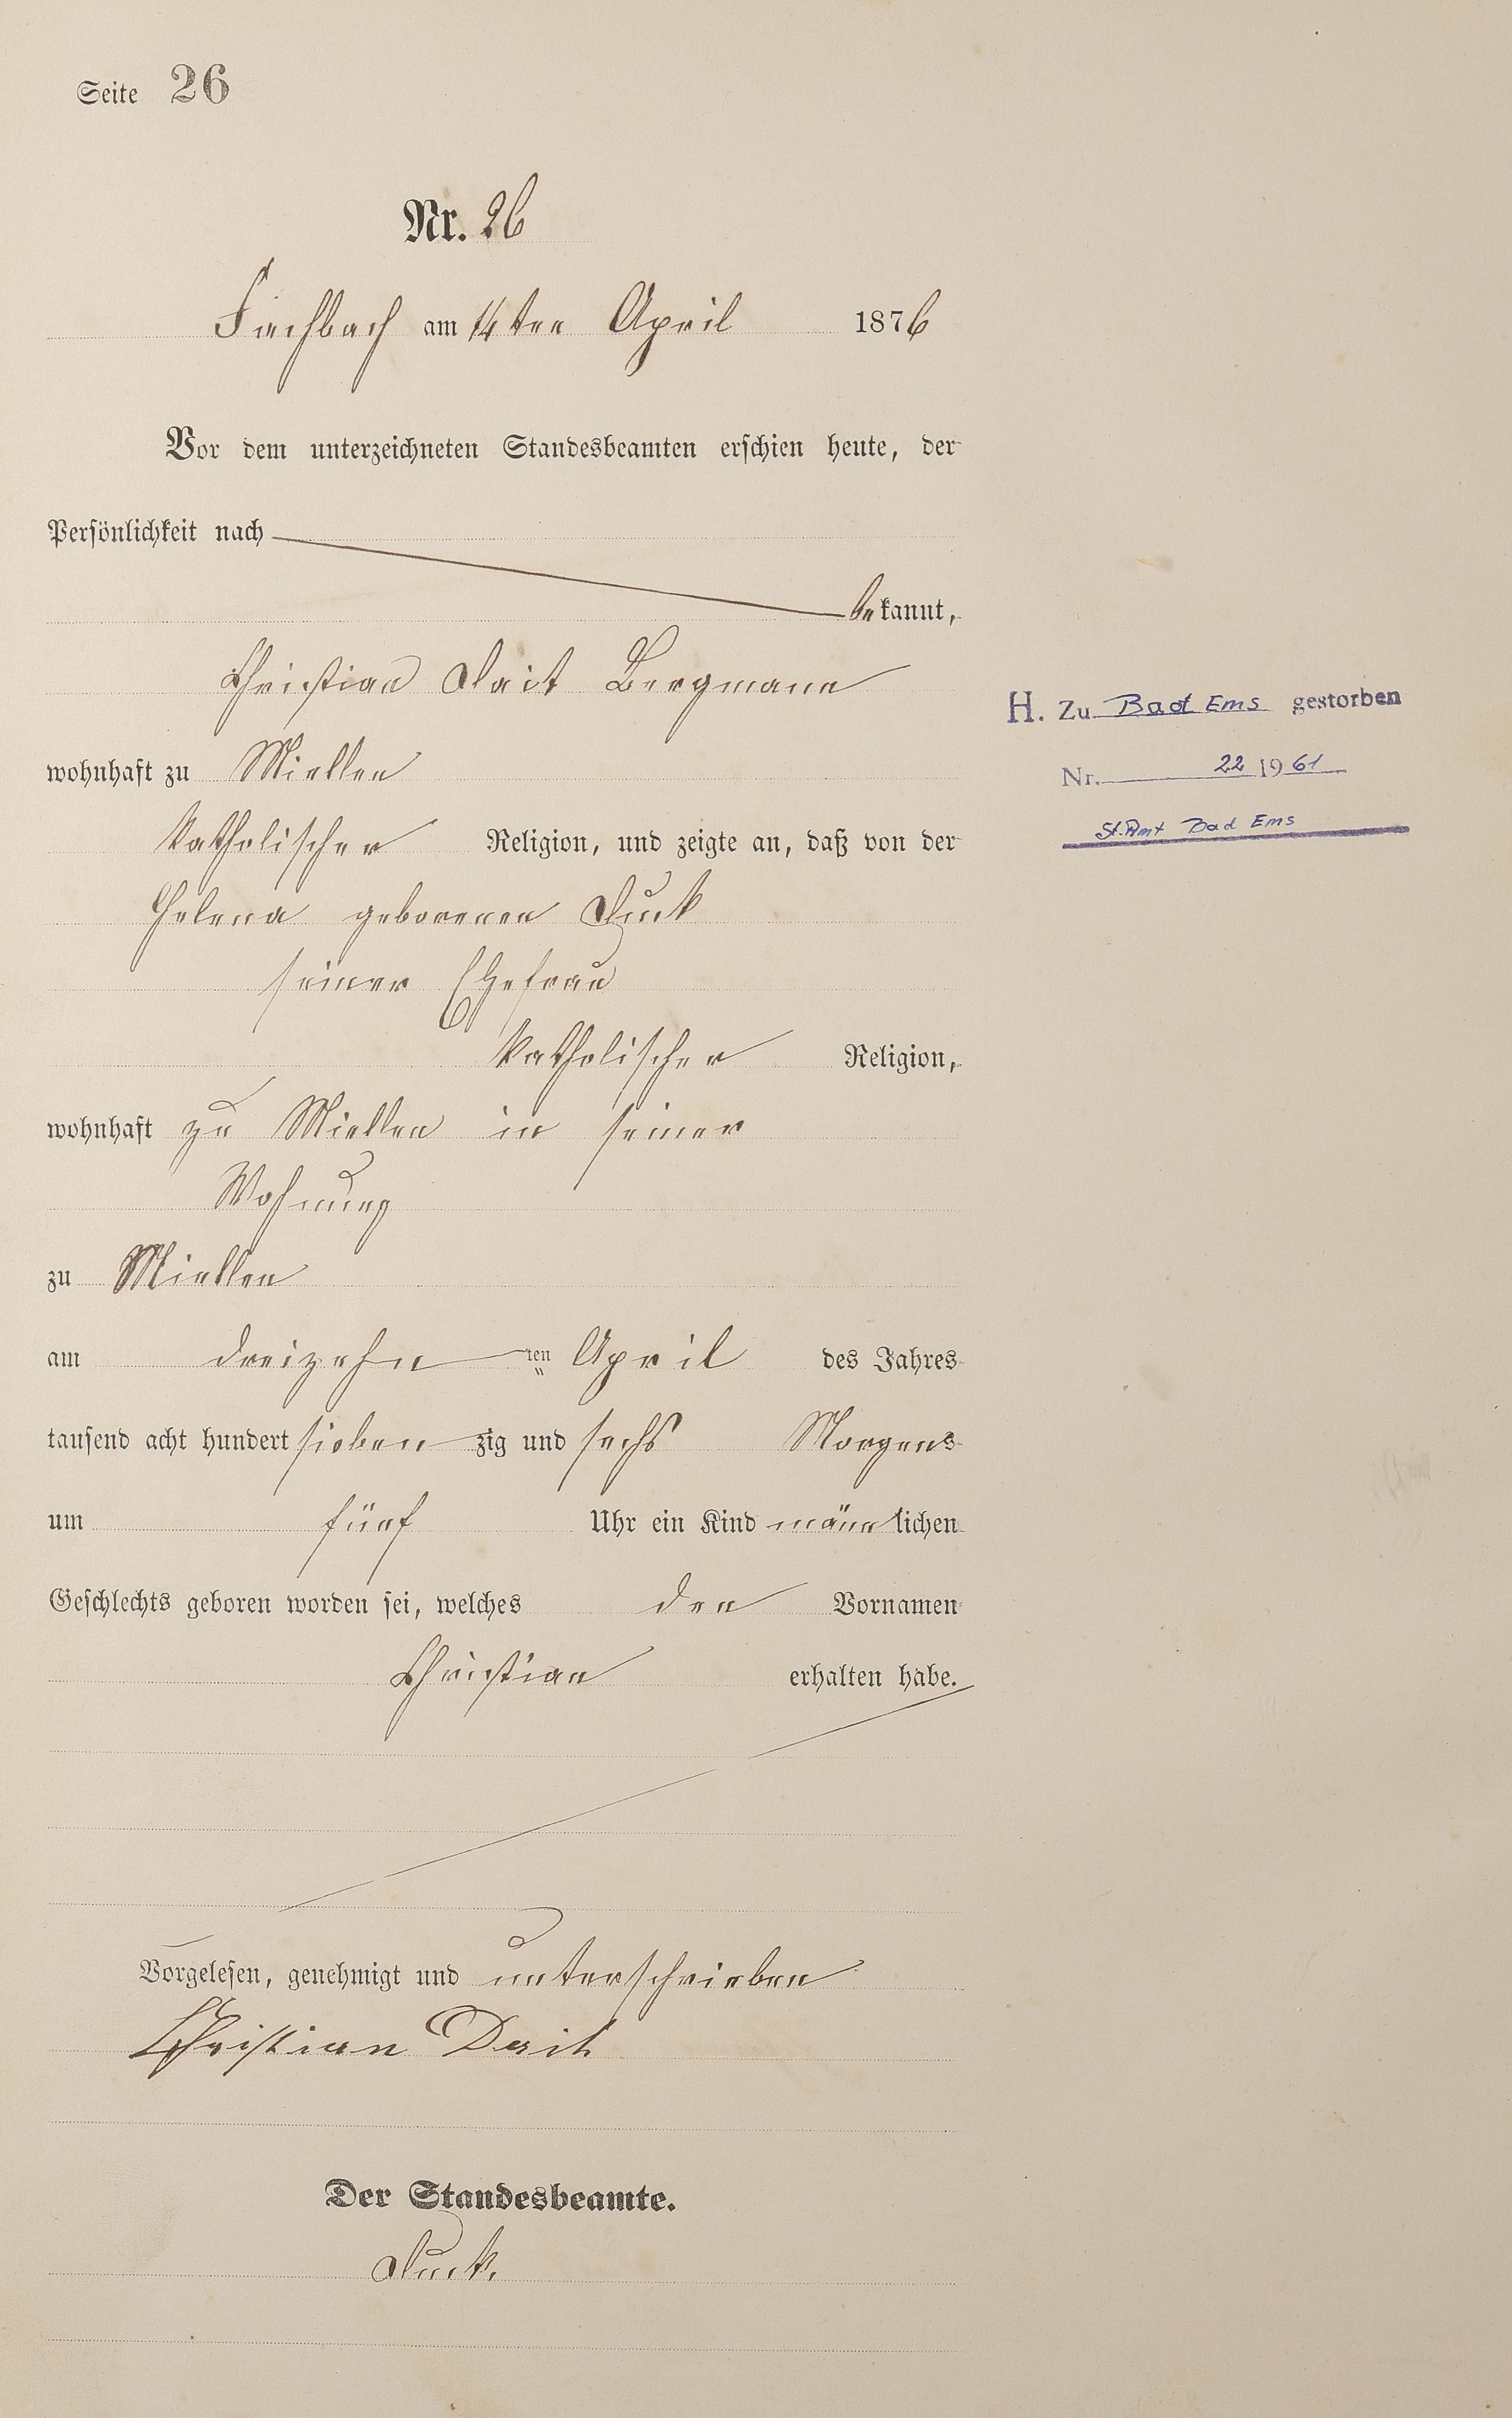 Seite 26
Nr. 26
Fachbach am 14ten April 1876
Vor dem unterzeichneten Standesbeamten erschien heute, der
Persönlichkeit nach
bekannt,
Christian Dait Bergmann
wohnhaft zu Miellen
katholischer Religion, und zeigte an, daß von der
Helena geborenen Duck
seiner Ehefrau
katholischer Religion,
wohnhaft zu Miellen in seiner
Wohnung
zu Miellen
am dreizehn ten April des Jahres
tausend acht hundert sieben zig und sechs Morgens
um fünf Uhr ein Kind männlichen
Geschlechts geboren worden sei, welches den Vornamen
Christian erhalten habe.
Vorgelesen, genehmigt und unterschrieben
Christian Dait
Der Standesbeamte.
Duck.
H. Zu Bad Ems gestorben
Nr. 22 1961
St. Amt Bad Ems